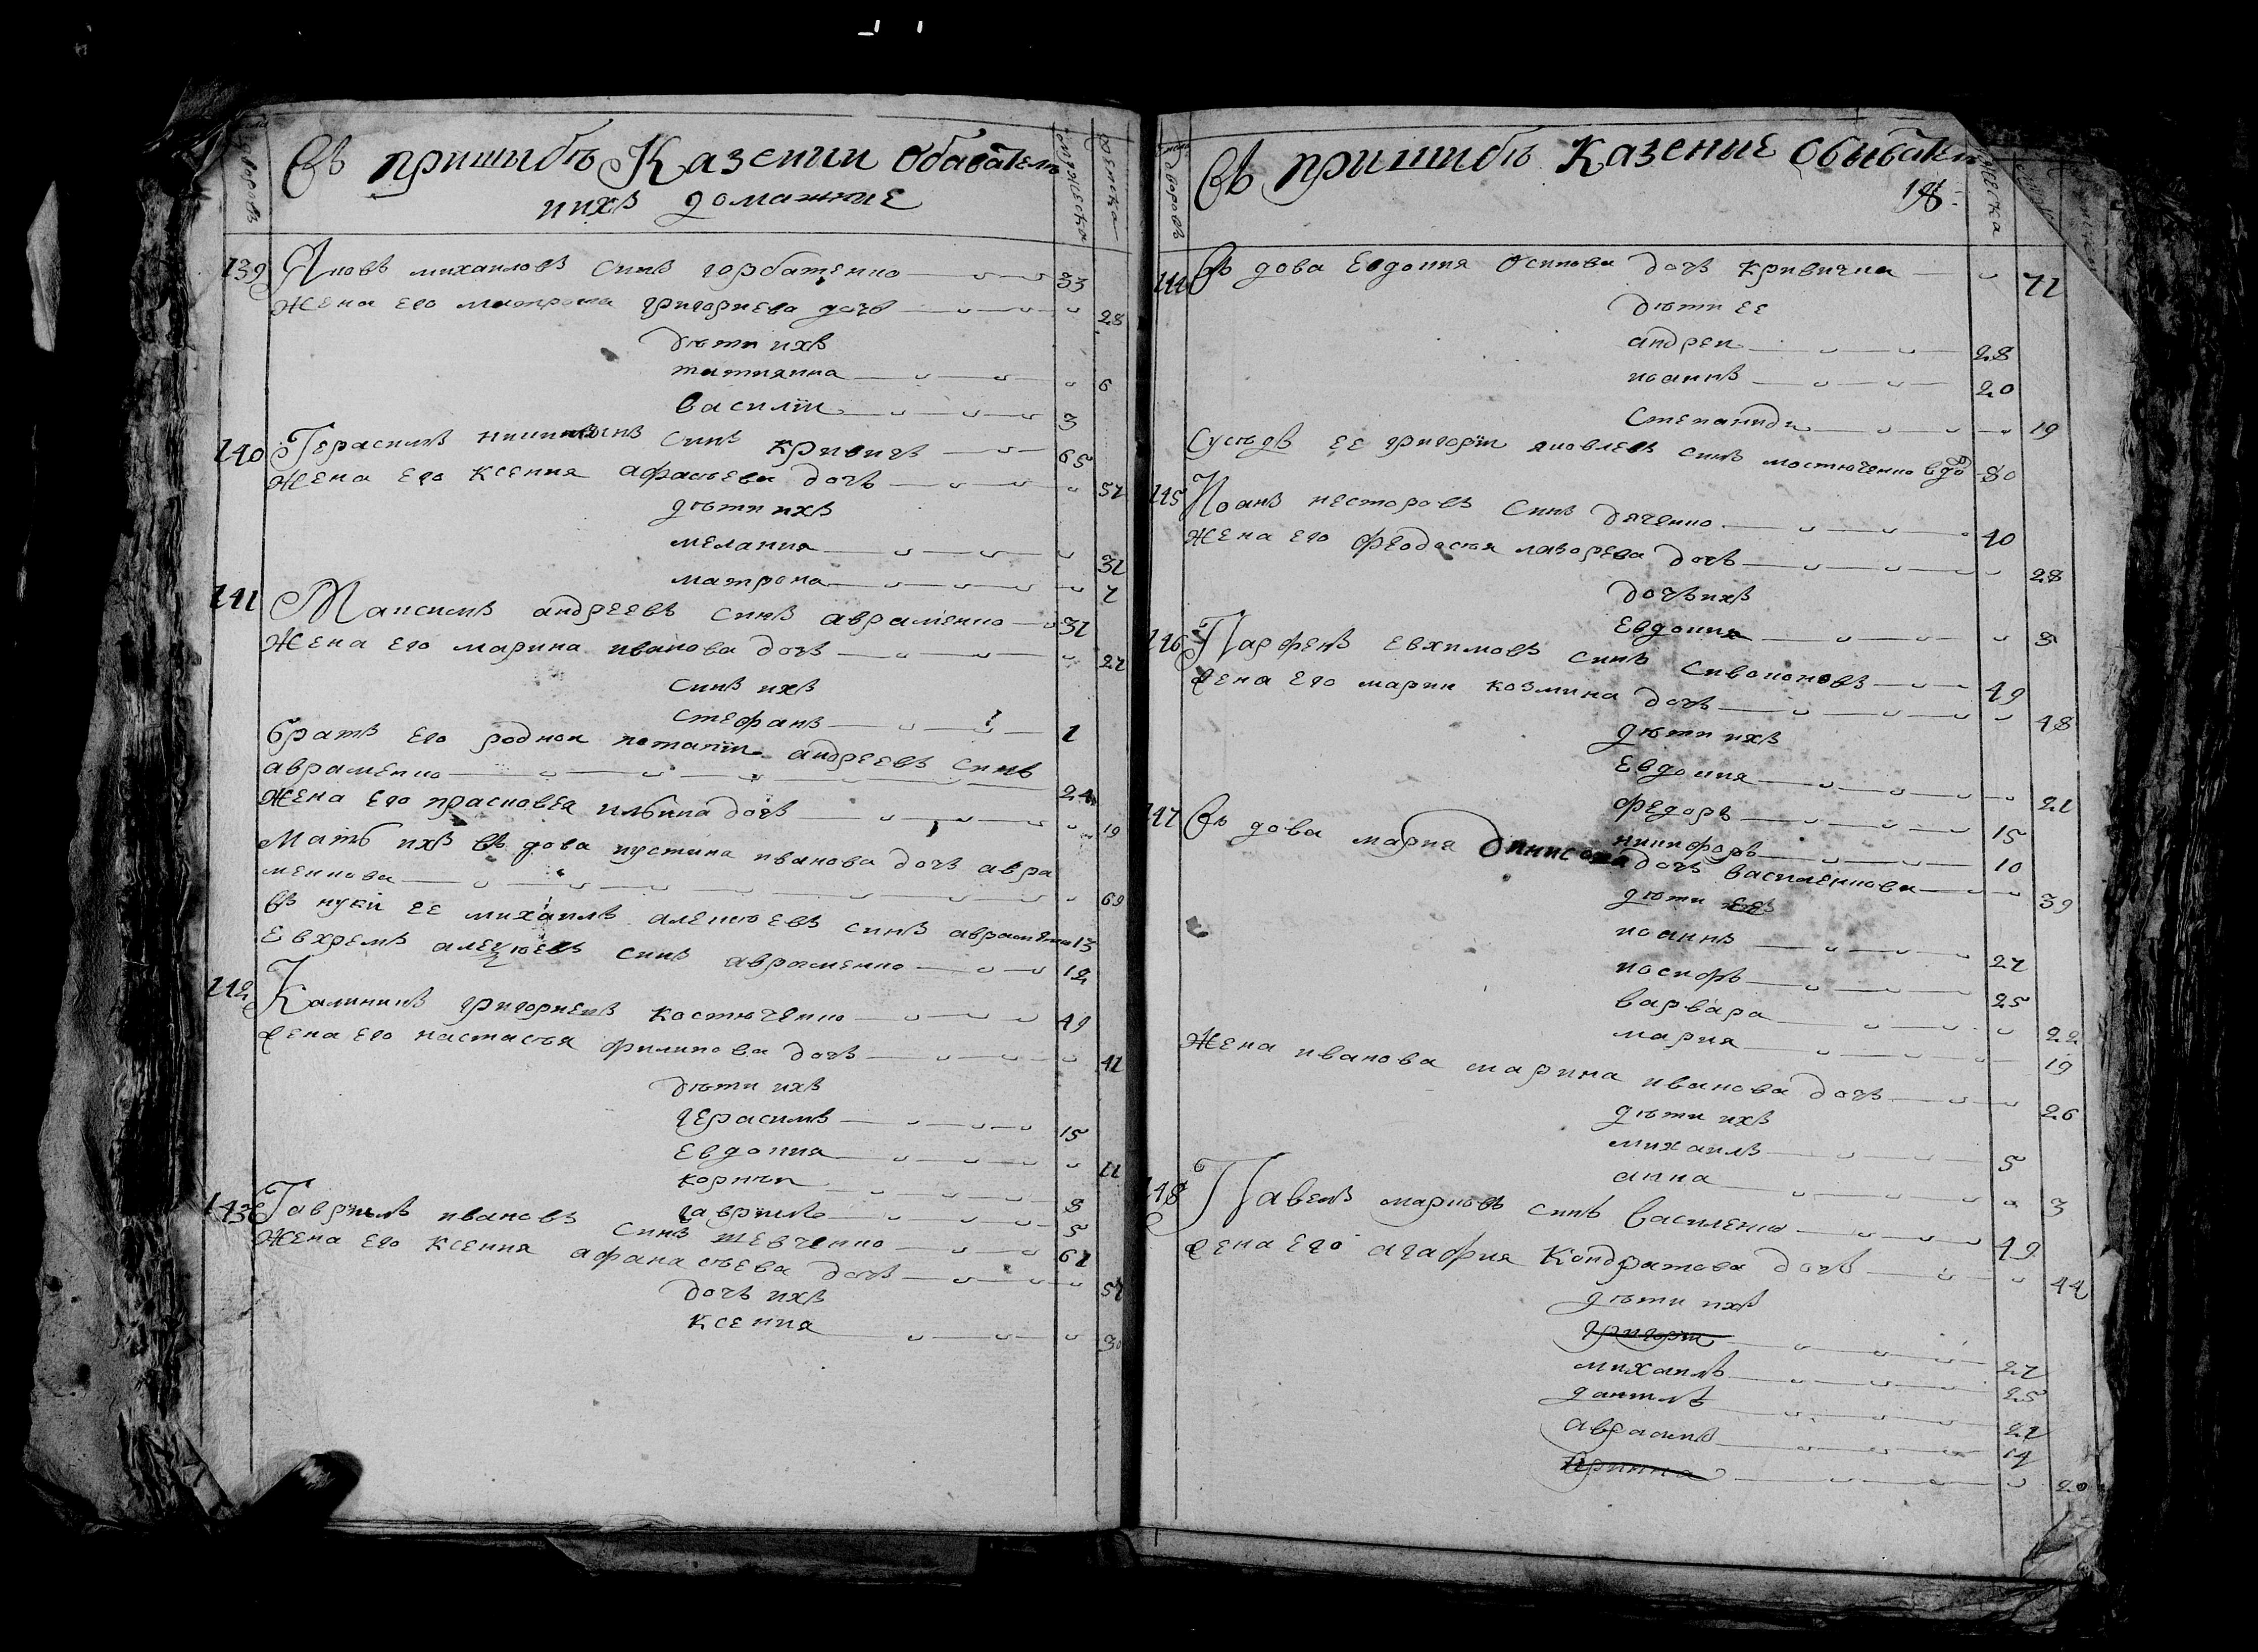 Въ пришыбѣ Казении обавателѣ
ихъ домашние
дворовъ
мужеска
женска
139 Яковъ михаиловъ синъ горбатенко 33
Жена его матрона григориева дочь 28
дѣти ихъ
татиянна 6
василїи 3
140 Герасимъ синъ кривичъ 65
Жена его ксения афанасьева дочъ 57
дѣти ихъ
мелания 37
матрона 7
141 Маисимъ андреевъ синъ авраменко 37
Жена его марина иванова дочъ 27
синъ ихъ
стефанъ 1
братъ его роднои потапїи андреевъ синъ
авраменко 24
Жена его прасковея илѣина дочъ 19
Мать ихъ въ дова иустина иванова дочъ авра
менкова 69
въ нуки ее михаилъ алеѯѣевъ синъ авраменко 13
Евхремъ алеѯѣевъ синъ авраменко 12
142 Калиникъ григориевъ костюченко 49
Жена его настасѣя филипова дочъ 47
дѣти ихъ
герасимъ 15
Евдокия 11
корнѣи 8
гаврїилъ 5
143 Гаврїилъ ивановъ синъ шевченко 67
Жена его ксения афанасѣева дочъ 57
дочъ ихъ
ксения 30
Въ пришибѣ казение обыватели
18
дворовъ
мужеска
144 Въ дова Евдокия Осипова дочъ кривичка 71
дѣти ее
андреи 28
иоаннъ 20
степанида 19
Сусѣдъ ее григорїи яковлевъ синъ мостюченко вдо 80
145 Иоанъ несторовъ синъ дяченко 40
Жена его феодосѣя лазорева дочъ 28
дочъ ихъ
Евдокия 3
146 Парфенъ евхимовъ синъ сивоконовъ 49
Жена его марии козмина дочъ 48
дѣти ихъ
Евдокия 21
федоръ 15
никифоръ 10
147 Въ дова мария динисова дочъ василенкова 39
дѣти ее
иоаннъ 27
иосифъ 25
варвара 22
мария 19
Жена иванова марина иванова дочъ 26
дѣти ихъ
михаилъ 5
анна 3
148 Павелъ марковъ синъ василенко 49
Жена его агафия кондратова дочь 44
дѣти ихъ
григорїи 27
михаилъ 25
даниилъ 22
авраамъ 14
иринна 20